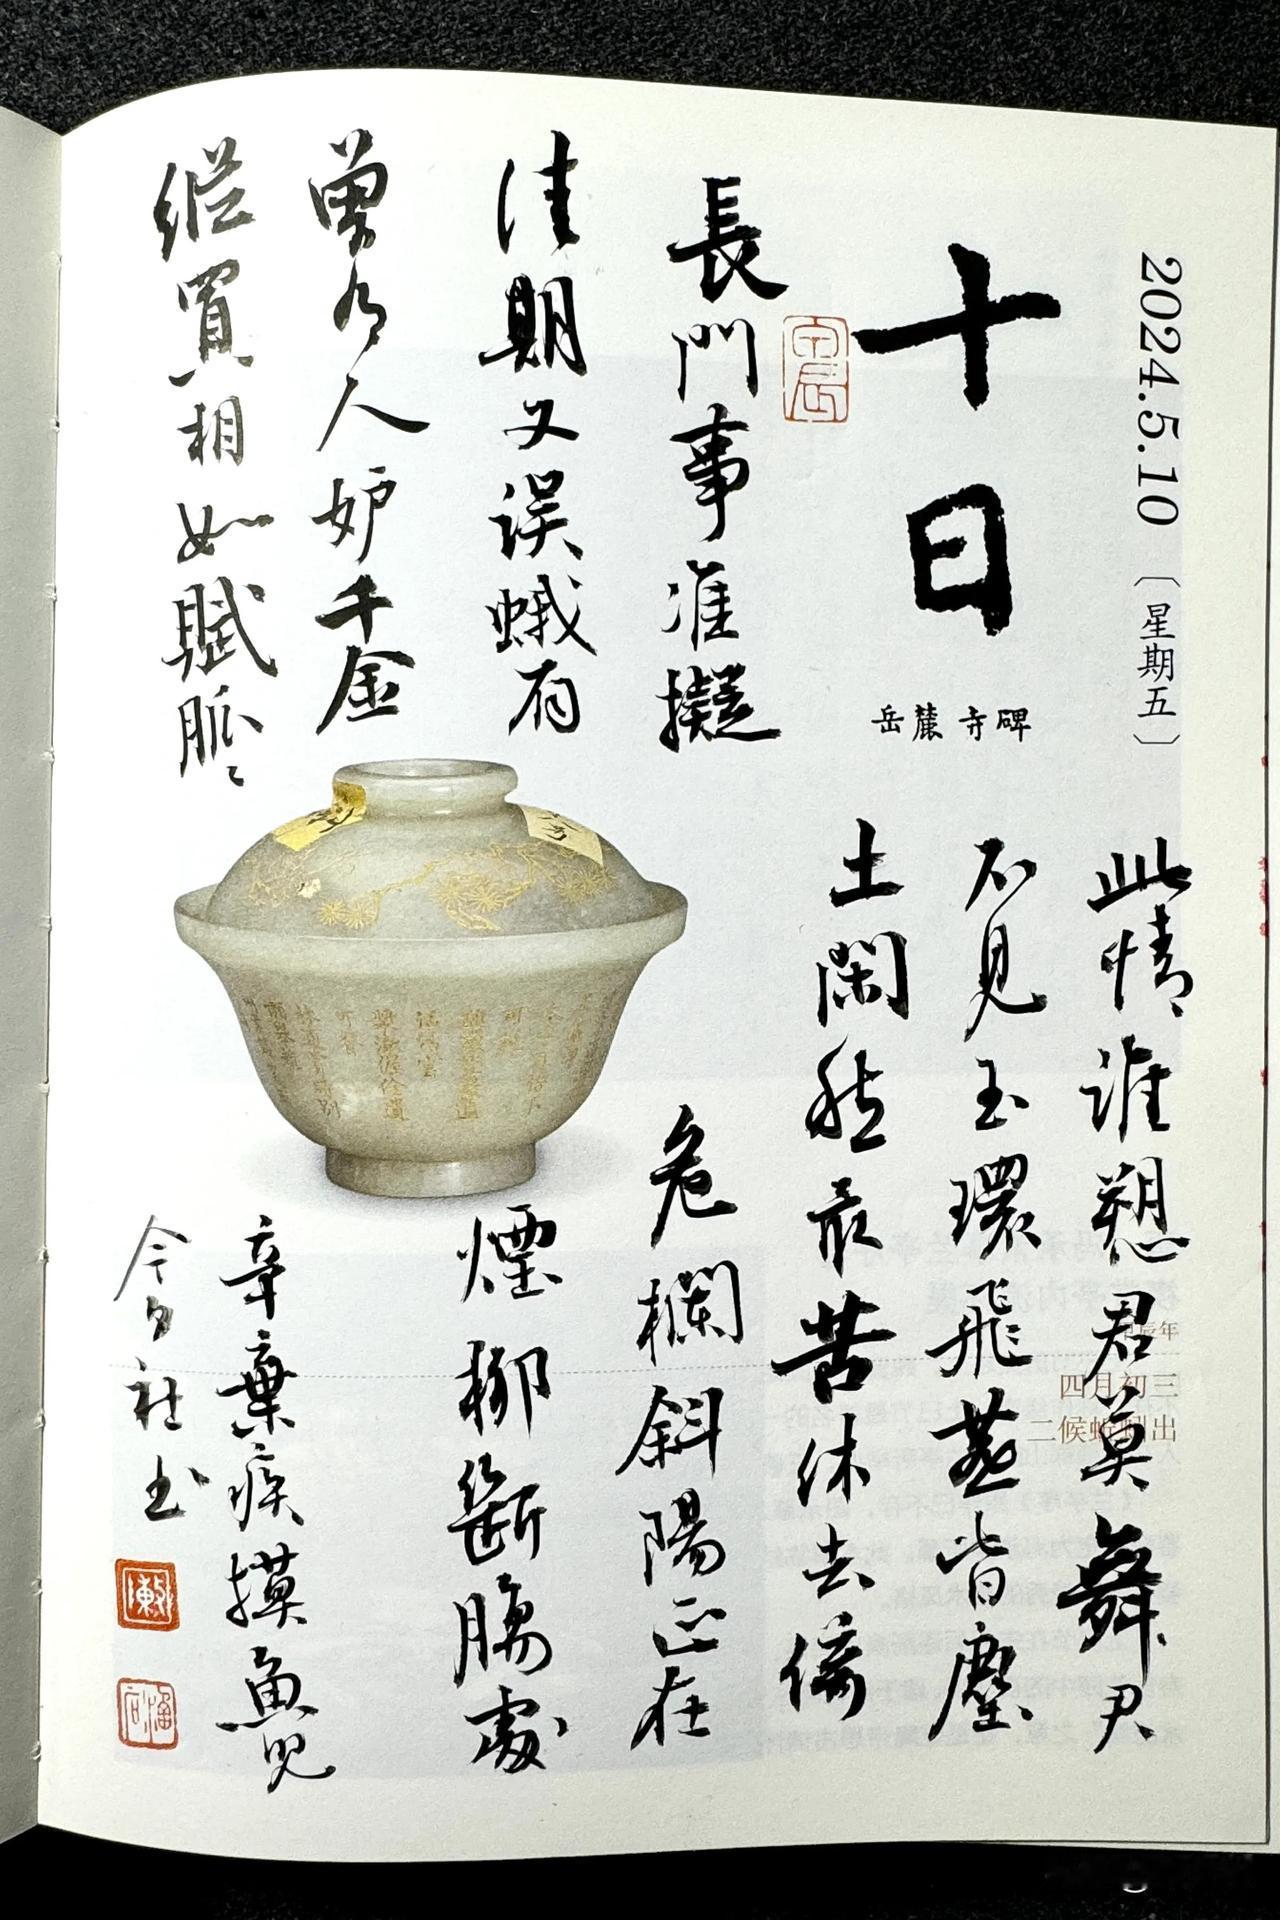 2024.5.10〔星期五〕
十日
岳麓寺碑
甲辰
長門事准擬
佳期又误蛾眉
曾有人妒千金
縱買相如賦脈々
此情誰愬君莫舞君
不見玉環飛燕皆塵
土閑愁最苦休去倚
危欄斜陽正在
煙柳斷腸處
辛棄疾摸魚兒
今夕社书
甲辰年
四月初三
二候蚯蚓出